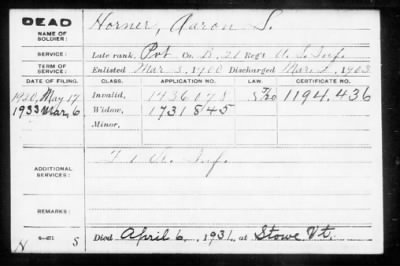 DEAD
NAME OF SOLDIER: Horner, Aaron S.
SERVICE: Late rank, Pvt Co. B, 21 Reg't U.S. Inf.
TERM OF SERVICE: Enlisted Mar 3, 1900 Discharged Mar 2, 1903
DATE OF FILING. CLASS. APPLICATION NO. LAW. CERTIFICATE NO.
1920, May 17 Invalid, 1436078 1194.436
1933 Mar, 6 Widow, 1731845
Minor,
ADDITIONAL SERVICES: Inf.
REMARKS:
Died April 6, 1931, at Stowe Vt.
N S